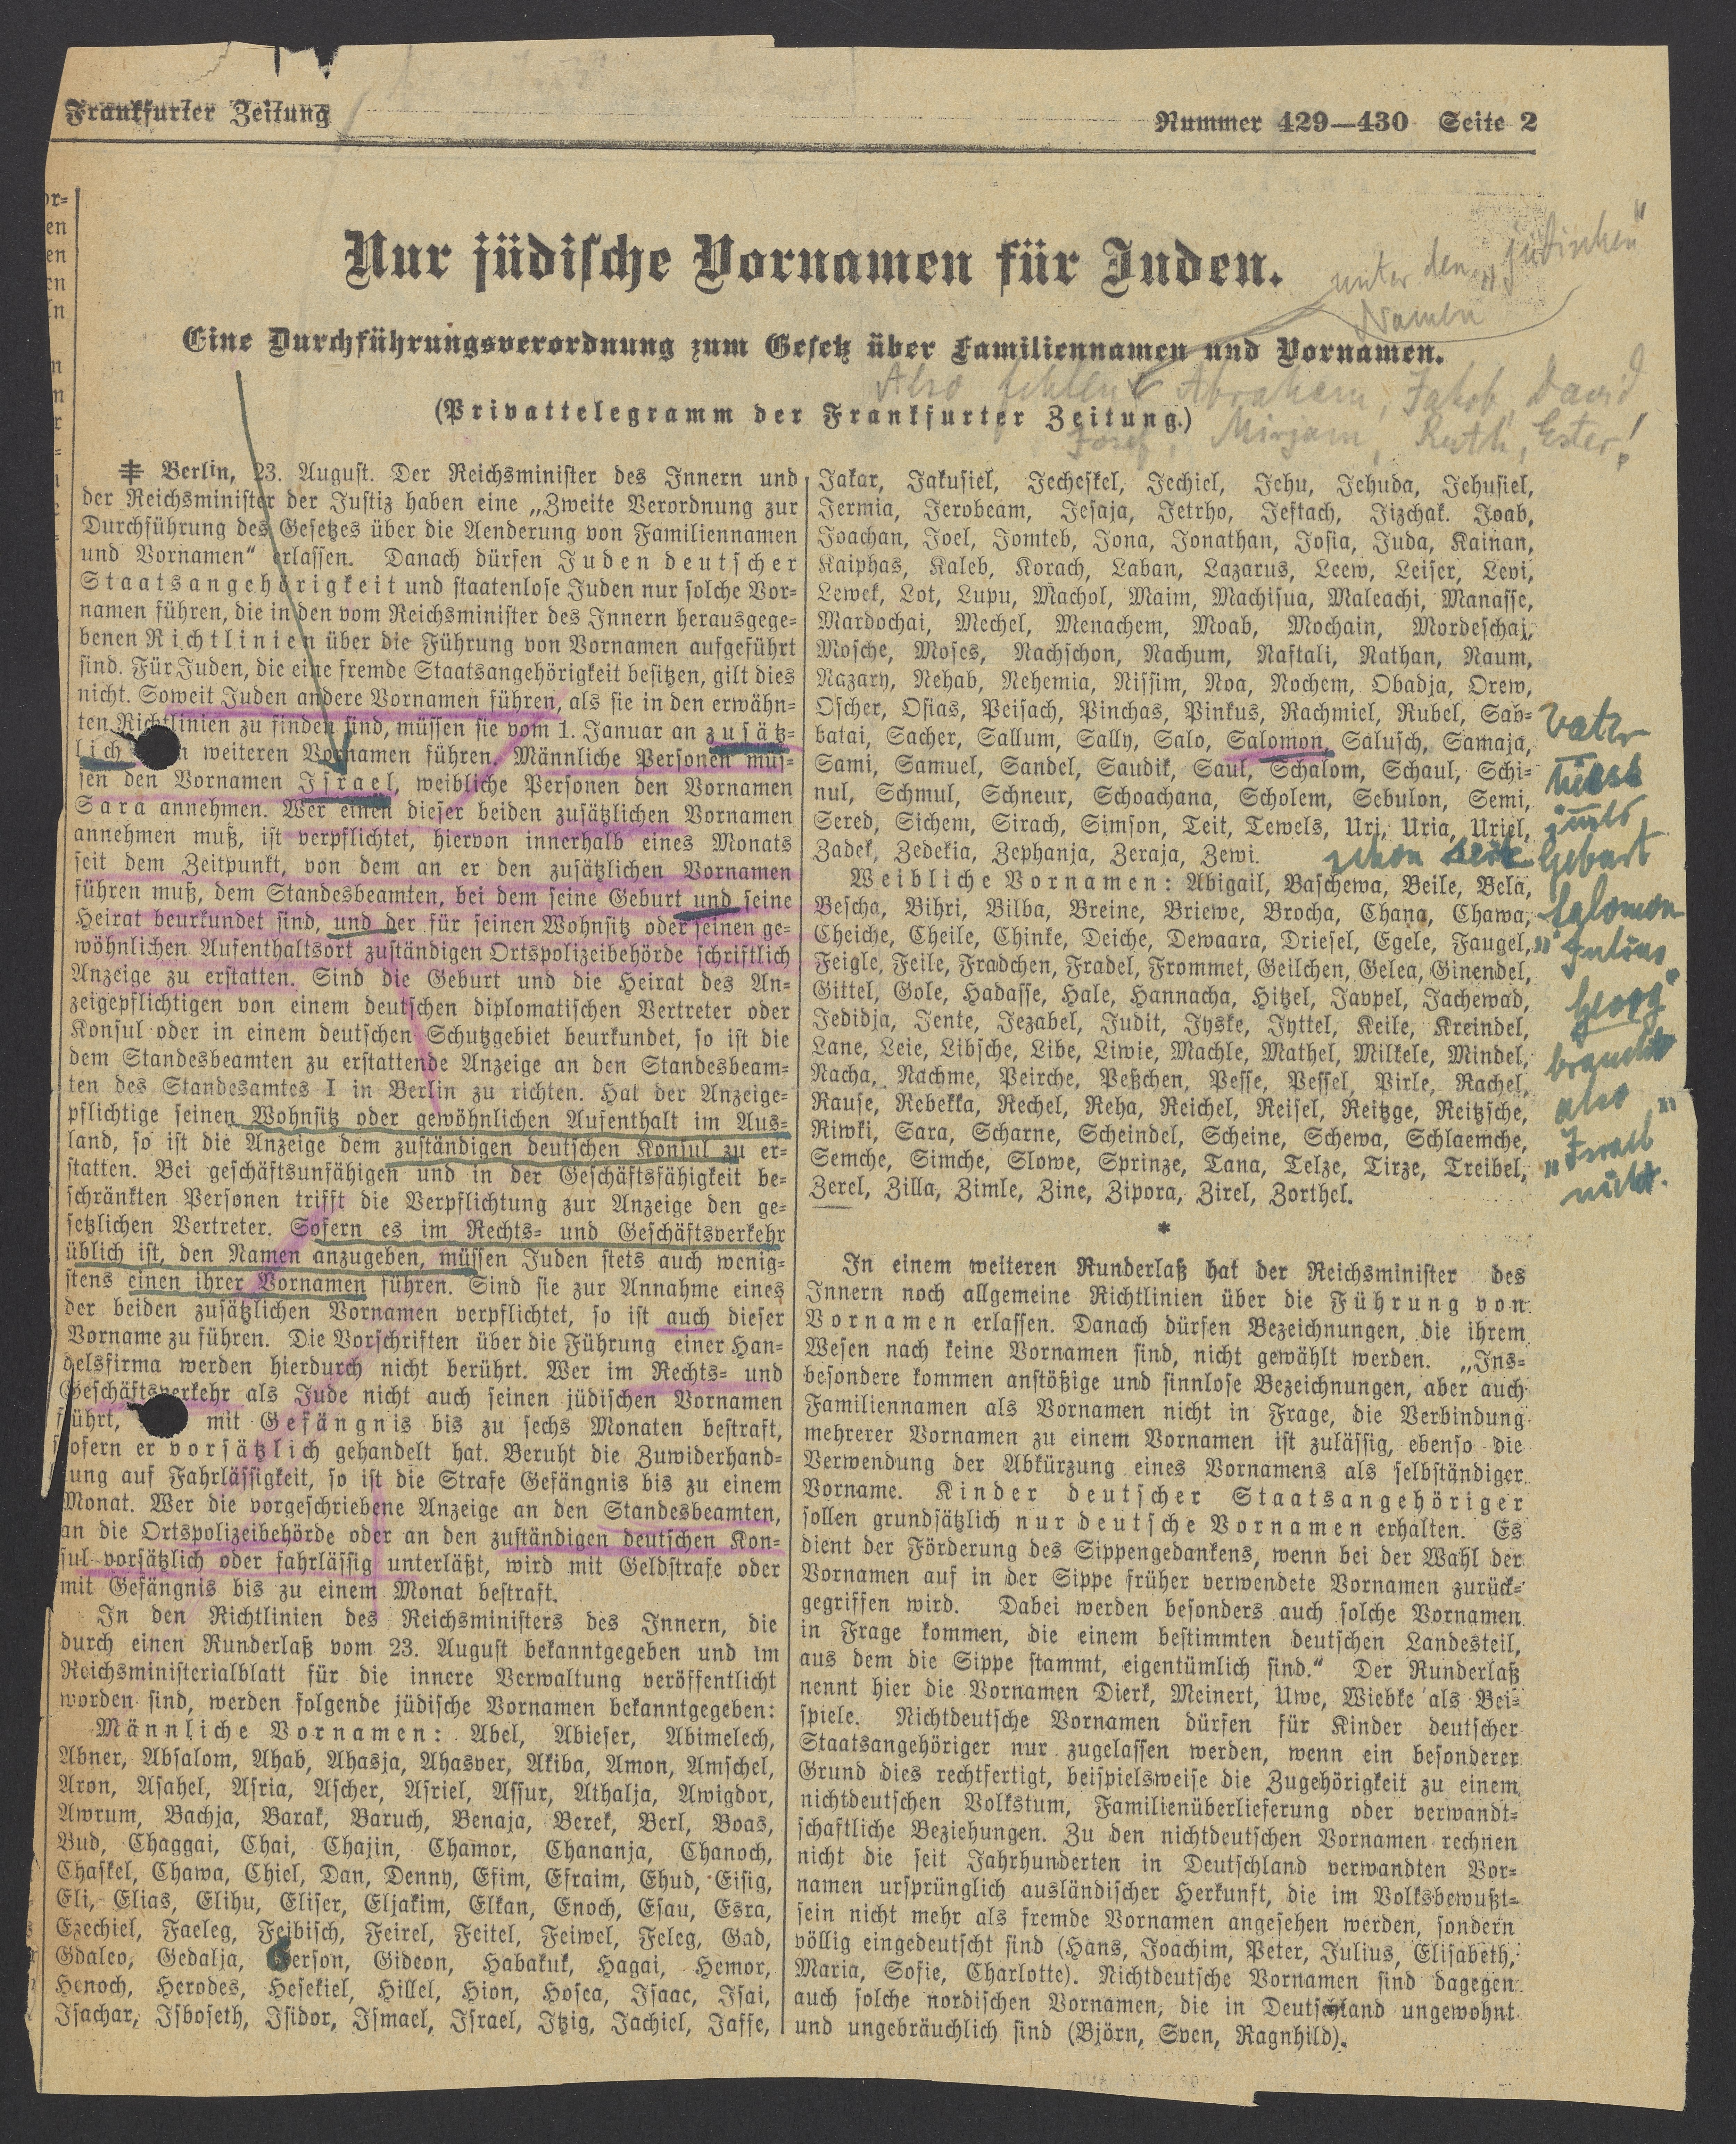 Frankfurter Zeitung
Nummer 429—430 Seite 2
Nur jüdische Vornamen für Juden.
unter den „jüdischen"
Namen
Eine Durchführungsverordnung zum Gesetz über Familiennamen und Vornamen.
Also fehlen Abraham, Jakob, David
(Privattelegramm der Frankfurter Zeitung.)
Josef, Mirjam, Ruth, Ester!
or=
en
en
en
⹋ Berlin, 23. August. Der Reichsminister des Innern und
der Reichsminister der Justiz haben eine „Zweite Verordnung zur
Durchführung des Gesetzes über die Aenderung von Familiennamen
und Vornamen“ erlassen. Danach dürfen Juden deutscher
Staatsangehörigkeit und staatenlose Juden nur solche Vor=
namen führen, die in den vom Reichsminister des Innern herausgege=
benen Richtlinien über die Führung von Vornamen aufgeführt
sind. Für Juden, die eine fremde Staatsangehörigkeit besitzen, gilt dies
nicht. Soweit Juden andere Vornamen führen, als sie in den erwähn=
ten Richtlinien zu finden sind, müssen sie vom 1. Januar an zusätz=
lich n weiteren Vornamen führen. Männliche Personen müs=
sen den Vornamen Israel, weibliche Personen den Vornamen
Sara annehmen. Wer einen dieser beiden zusätzlichen Vornamen
annehmen muß, ist verpflichtet, hiervon innerhalb eines Monats
seit dem Zeitpunkt, von dem an er den zusätzlichen Vornamen
führen muß, dem Standesbeamten, bei dem seine Geburt und seine
Heirat beurkundet sind, und der für seinen Wohnsitz oder seinen ge=
wöhnlichen Aufenthaltsort zuständigen Ortspolizeibehörde schriftlich
Anzeige zu erstatten. Sind die Geburt und die Heirat des An=
zeigepflichtigen von einem deutschen diplomatischen Vertreter oder
Konsul oder in einem deutschen Schutzgebiet beurkundet, so ist die
dem Standesbeamten zu erstattende Anzeige an den Standesbeam=
ten des Standesamtes I in Berlin zu richten. Hat der Anzeige=
pflichtige seinen Wohnsitz oder gewöhnlichen Aufenthalt im Aus=
land, so ist die Anzeige dem zuständigen deutschen Konsul zu er=
statten. Bei geschäftsunfähigen und in der Geschäftsfähigkeit be=
schränkten Personen trifft die Verpflichtung zur Anzeige den ge=
setzlichen Vertreter. Sofern es im Rechts= und Geschäftsverkehr
üblich ist, den Namen anzugeben, müssen Juden stets auch wenig=
stens einen ihrer Vornamen führen. Sind sie zur Annahme eines
der beiden zusätzlichen Vornamen verpflichtet, so ist auch dieser
Vorname zu führen. Die Vorschriften über die Führung einer Han=
delsfirma werden hierdurch nicht berührt. Wer im Rechts= und
Geschäftsverkehr als Jude nicht auch seinen jüdischen Vornamen
führt, mit Gefängnis bis zu sechs Monaten bestraft,
sofern er vorsätzlich gehandelt hat. Beruht die Zuwiderhand=
lung auf Fahrlässigkeit, so ist die Strafe Gefängnis bis zu einem
Monat. Wer die vorgeschriebene Anzeige an den Standesbeamten,
an die Ortspolizeibehörde oder an den zuständigen deutschen Kon=
sul vorsätzlich oder fahrlässig unterläßt, wird mit Geldstrafe oder
mit Gefängnis bis zu einem Monat bestraft.
In den Richtlinien des Reichsministers des Innern, die
durch einen Runderlaß vom 23. August bekanntgegeben und im
Reichsministerialblatt für die innere Verwaltung veröffentlicht
worden sind, werden folgende jüdische Vornamen bekanntgegeben:
Männliche Vornamen: Abel, Abieser, Abimelech,
Abner, Absalom, Ahab, Ahasja, Ahasver, Akiba, Amon, Amschel,
Aron, Asahel, Asria, Ascher, Asriel, Assur, Athalja, Awigdor,
Awrum, Bachja, Barak, Baruch, Benaja, Berek, Berl, Boas,
Bud, Chaggai, Chai, Chajin, Chamor, Chananja, Chanoch,
Chaskel, Chawa, Chiel, Dan, Denny, Efim, Efraim, Ehud, Eisig,
Eli, Elias, Elihu, Eliser, Eljakim, Elkan, Enoch, Esau, Esra,
Ezechiel, Faeleg, Feibisch, Feirel, Feitel, Feiwel, Feleg, Gad,
Gdaleo, Gedalja, Gerson, Gideon, Habakuk, Hagai, Hemor,
Henoch, Herodes, Hesekiel, Hillel, Hion, Hosea, Isaac, Isai,
Isachar, Isboseth, Isidor, Ismael, Israel, Itzig, Jachiel, Jaffe,
Jakar, Jakusiel, Jecheskel, Jechiel, Jehu, Jehuda, Jehusiel,
Jermia, Jerobeam, Jesaja, Jetrho, Jeftach, Jizchak. Joab,
Joachan, Joel, Jomteb, Jona, Jonathan, Josia, Juda, Kainan,
Kaiphas, Kaleb, Korach, Laban, Lazarus, Leew, Leiser, Levi,
Lewek, Lot, Lupu, Machol, Maim, Machisua, Maleachi, Manasse,
Mardochai, Mechel, Menachem, Moab, Mochain, Mordeschaj,
Mosche, Moses, Nachschon, Nachum, Naftali, Nathan, Naum,
Nazary, Nehab, Nehemia, Nissim, Noa, Nochem, Obadja, Orew,
Oscher, Osias, Peisach, Pinchas, Pinkus, Rachmiel, Rubel, Sab=
batai, Sacher, Sallum, Sally, Salo, Salomon, Salusch, Samaja,
Sami, Samuel, Sandel, Saudik, Saul, Schalom, Schaul, Schi=
nul, Schmul, Schneur, Schoachana, Scholem, Sebulon, Semi,
Sered, Sichem, Sirach, Simson, Teit, Tewels, Uri, Uria, Uriel,
Zadek, Zedekia, Zephanja, Zeraja, Zewi.
Weibliche Vornamen: Abigail, Baschewa, Beile, Bela,
Bescha, Bihri, Bilba, Breine, Briewe, Brocha, Chana, Chawa,
Cheiche, Cheile, Chinke, Deiche, Dewaara, Driesel, Egele, Faugel,
Feigle, Feile, Fradchen, Fradel, Frommet, Geilchen, Gelea, Ginendel,
Gittel, Gole, Hadasse, Hale, Hannacha, Hitzel, Jappel, Jachewad,
Jedidja, Jente, Jezabel, Judit, Jyske, Jyttel, Keile, Kreindel,
Lane, Leie, Libsche, Libe, Liwie, Machle, Mathel, Milkele, Mindel,
Nacha, Nachme, Peirche, Peßchen, Pesse, Pessel, Pirle, Rachel,
Rause, Rebekka, Rechel, Reha, Reichel, Reisel, Reitzge, Reitzsche,
Riwki, Sara, Scharne, Scheindel, Scheine, Schewa, Schlaemche,
Semche, Simche, Slowe, Sprinze, Tana, Telze, Tirze, Treibel,
Zerel, Zilla, Zimle, Zine, Zipora, Zirel, Zorthel.
*
In einem weiteren Runderlaß hat der Reichsminister des
Innern noch allgemeine Richtlinien über die Führung von
Vornamen erlassen. Danach dürfen Bezeichnungen, die ihrem
Wesen nach keine Vornamen sind, nicht gewählt werden. „Ins=
besondere kommen anstößige und sinnlose Bezeichnungen, aber auch
Familiennamen als Vornamen nicht in Frage, die Verbindung
mehrerer Vornamen zu einem Vornamen ist zulässig, ebenso die
Verwendung der Abkürzung eines Vornamens als selbständiger
Vorname. Kinder deutscher Staatsangehöriger
sollen grundsätzlich nur deutsche Vornamen erhalten. Es
dient der Förderung des Sippengedankens, wenn bei der Wahl der
Vornamen auf in der Sippe früher verwendete Vornamen zurück=
gegriffen wird. Dabei werden besonders auch solche Vornamen
in Frage kommen, die einem bestimmten deutschen Landesteil,
aus dem die Sippe stammt, eigentümlich sind.“ Der Runderlaß
nennt hier die Vornamen Dierk, Meinert, Uwe, Wiebke als Bei=
spiele. Nichtdeutsche Vornamen dürfen für Kinder deutscher
Staatsangehöriger nur zugelassen werden, wenn ein besonderer
Grund dies rechtfertigt, beispielsweise die Zugehörigkeit zu einem
nichtdeutschen Volkstum, Familienüberlieferung oder verwandt=
schaftliche Beziehungen. Zu den nichtdeutschen Vornamen rechnen
nicht die seit Jahrhunderten in Deutschland verwandten Vor=
namen ursprünglich ausländischer Herkunft, die im Volksbewußt=
sein nicht mehr als fremde Vornamen angesehen werden, sondern
völlig eingedeutscht sind (Hans, Joachim, Peter, Julius, Elisabeth,
Maria, Sofie, Charlotte). Nichtdeutsche Vornamen sind dagegen
auch solche nordischen Vornamen, die in Deutschland ungewohnt
und ungebräuchlich sind (Björn, Sven, Ragnhild).
Vater
hiess
schon seit Geburt
Salomon
„Julius
Georg"
brauchte
also
„Israel"
nicht.